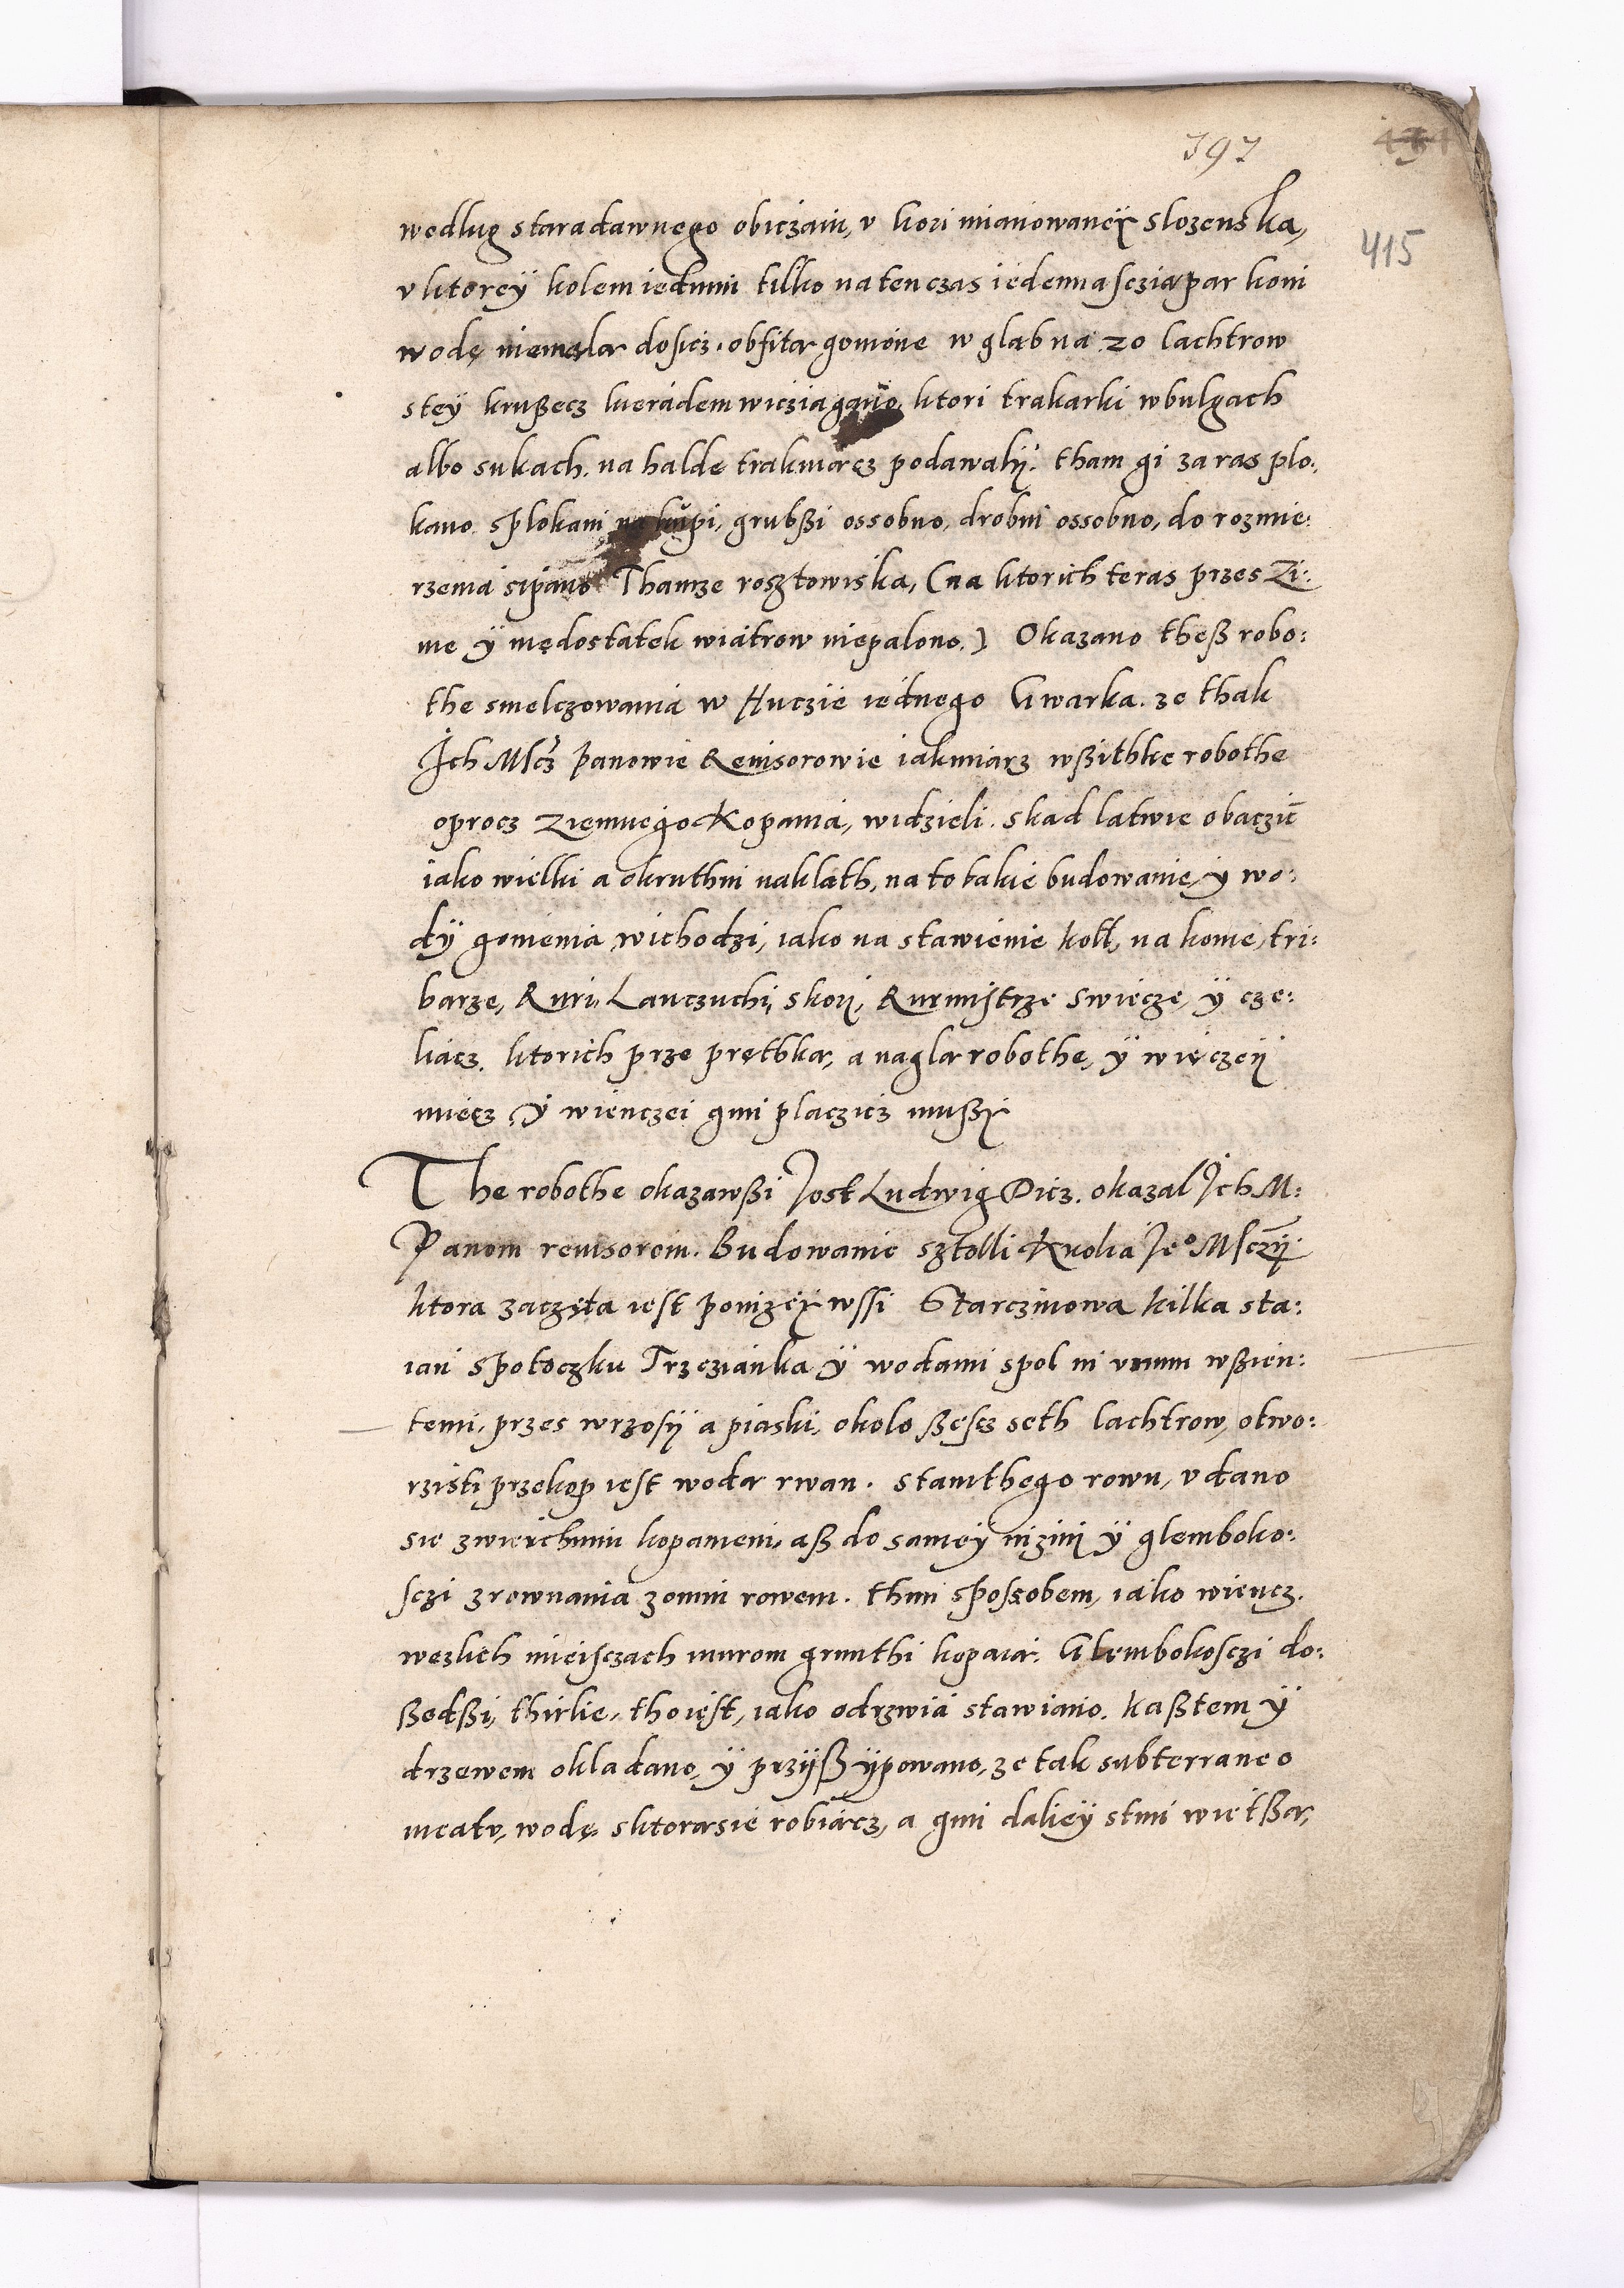 397
431
415
wedlug staradawnego obiczaiu, v kori mianowaneÿ slozenska,
v ktoreÿ kolem iednim tilko na ten czas iedennasczia par koni
wodę niemala dosicz obfita gonione w glab na 20 lachtrow
steÿ krußecz kieradem wicziagano, ktori trakarki w bulgach
albo sukach na halde trakuiącz podawalÿ: tham gi zaras plo:
kano splokani na kupi, grubßi ossobno, drobni ossobno, do rozmie:
rzenia sipano Thamze rosztowiska, (na ktorich teras przes Zi:
me ÿ niedostatek wiatrow niepalono.) Okazano theß robo:
the smelczowania w Huczie iednego Gwarka. ze thak
Ich Mscz panowie Reuisorowie iakmiarz wßithke robothe
oprocz ziemnego kopania, widzieli. skad latwie obaczic
iako wielki a okruthni naklath, na to takie budowanie ÿ wo:
dÿ gonienia wichodzi, iako na stawienie koll, na konie, tri:
barze, Ruri, Lanczuchi, skori, Rurmistrze swiecze, ÿ cze:
liacz. ktorich prze prętbka, a nagla robothe, ÿ wieczeÿ
miecz ÿ wienczei gmi placzicz mußi
The robothe okazawßi Jost Ludwig Dicz. okazal Ich M:
Panom reuisorom. Budowanie sztolli Krolia Jeo Msczÿ
ktora zaczęta iest ponizeÿ wssi Starczinowa kilka sta:
iani spotoczku Trzczianka ÿ wodami spol ni vnim wßien:
temi, przes wrzosÿ a piaski, okolo ßescz seth lachtrow, otwo:
rzisti przekop iest woda rwan. stamthego rowu, vdano
sie zwierchnim kopaniem, aß do sameÿ nizini ÿ glemboko:
sczi zrownania zonim rowem. thim sposzobem, iako wiencz
wezkich mieisczach murom grunthi kopaia: Glembokosczi do:
ßedßi, thirlie, tho iest, iako odrzwia stawiano. kaßtem ÿ
drzewem okladano, ÿ przÿßÿpowano, ze tak subterraneo
meatu, wodę sktora sie robiacz, a gmi dalieÿ stmi wietßa,